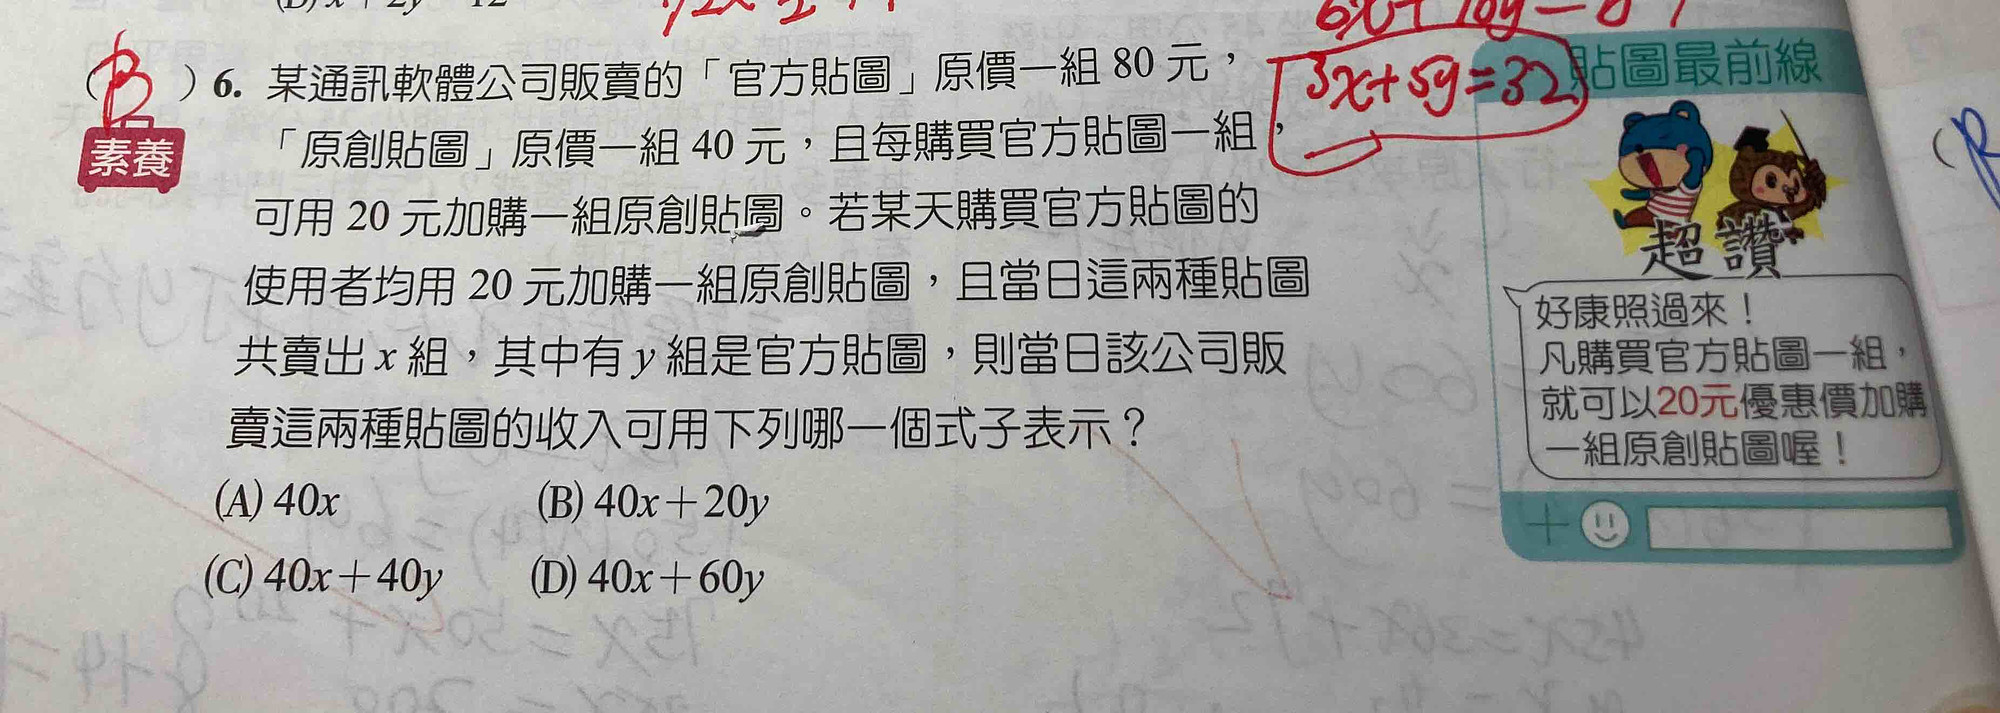 6x+10y=64
3x+5y=32
(B) 6. 某通訊軟體公司販賣的「官方貼圖」原價一組 80 元,
素養
「原創貼圖」原價一組 40 元,且每購買官方貼圖一組,
可用 20 元加購一組原創貼圖。若某天購買官方貼圖的
使用者均用 20 元加購一組原創貼圖,且當日這兩種貼圖
共賣出 x 組,其中有 y 組是官方貼圖,則當日該公司販
賣這兩種貼圖的收入可用下列哪一個式子表示?
(A) 40x (B) 40x+20y
(C) 40x+40y (D) 40x+60y
貼圖最前線
超讚
好康照過來!
凡購買官方貼圖一組,
就可以20元優惠價加購
一組原創貼圖喔!